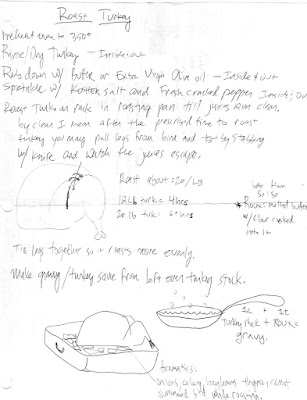 Roast Turkey
Preheat oven to 350°
Rinse/Dry Turkey - Inside & out
Rub down w/ Butter or Extra Virgin Olive oil - Inside & out
Sprinkle w/ Kosher salt and Fresh cracked pepper Inside & out
Roast Turkey on rack in roasting pan till juices run clear,
by clear I mean after the prescribed time to roast
turkey you may pull legs from bird and test by stabbing
w/ knife and watch the juices escape.
Roast about = 20/LB
12 LB turk = 4 hrs
20 lb turk = 6 hrs
50:50
* Roux = melted butter
w/ flour cooked
into it
Tie legs together so it roasts more evenly.
Make gravy/turkey sauce from left over turkey stock.
1c + 1t
Turkey stock + Roux =
gravy.
Aromatics:
onions, celery,
surround bird while roasting.